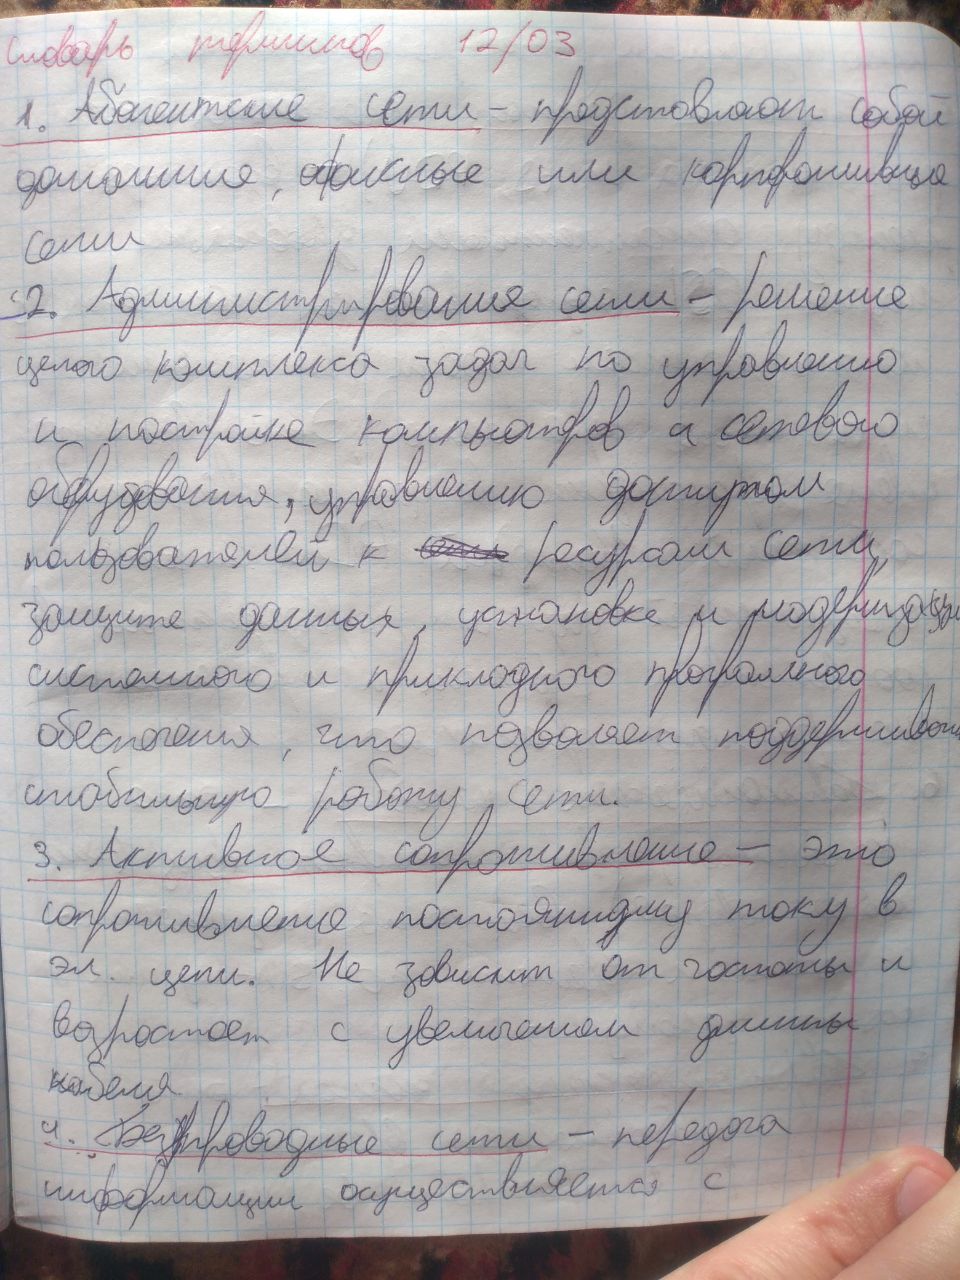 Словарь терминов 12/03
1. Абонентские сети – представляют собой
домашние, офисные или корпоративные
сети
2. Администрирование сети – решение
целого комплекса задач по управлению
и настройке компьютеров и сетевого
оборудования, управлению доступом
пользователей к ресурсам сети,
защите данных, установке и модернизации
системного и прикладного программного
обеспечения, что позволяет поддерживать
стабильную работу сети.
3. Активное сопротивление – это
сопротивление постоянному току в
эл. цепи. Не зависит от частоты и
возрастает с увеличением длины
кабеля
4. Беспроводные сети – передача
информации осуществляется с